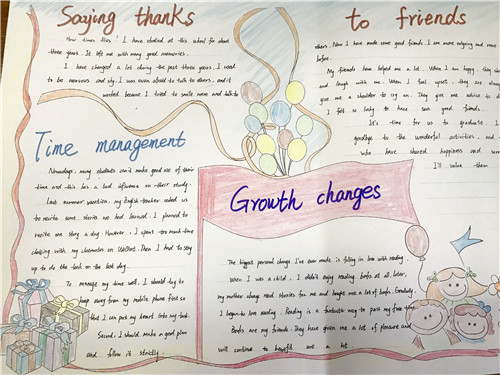 Saying thanks to friends
How times flies! I have studied at this school for about
three years. It left me with many good memories.
I have changed a lot during the past three years. I used
to be nervous and shy. I was even afraid to talk to others, and it
worked because I tried to smile more and talk to
others. Now I have made some good friends. I am more outgoing and
before.
My friends have helped me a lot. When I am happy, they
and laugh with me. When I feel upset, they are
give me a shoulder to cry on. They give me advice
I feel so lucky to have such good friends.
It's time for us to graduate. I
goodbye to the wonderful activities and
who have shared happiness and
I'll value them
Time management
Nowadays many students can't make good use of their
time and this has a bad influence on their study.
Last summer vacation, my English teacher asked us
to recite some stories we had learned. I planned to
recite one story a day. However, I spent too much time
chatting with my classmates on WeChat. Then I had to stay
up to do the task on the last day.
To manage my time well, I should try to
keep away from my mobile phone first so
that I can put my heart into my task.
Second, I should make a good plan
and follow it strictly.
Growth changes
The biggest personal change I've ever made is falling in love with reading.
When I was a child, I didn't enjoy reading books at all. Later,
my mother always read stories for me and bought me a lot of books. Gradually,
I began to love reading. Reading is a fantastic way to pass my free time.
Books are my friends. They have given me a lot of pleasure and
will continue to benefit me a lot.